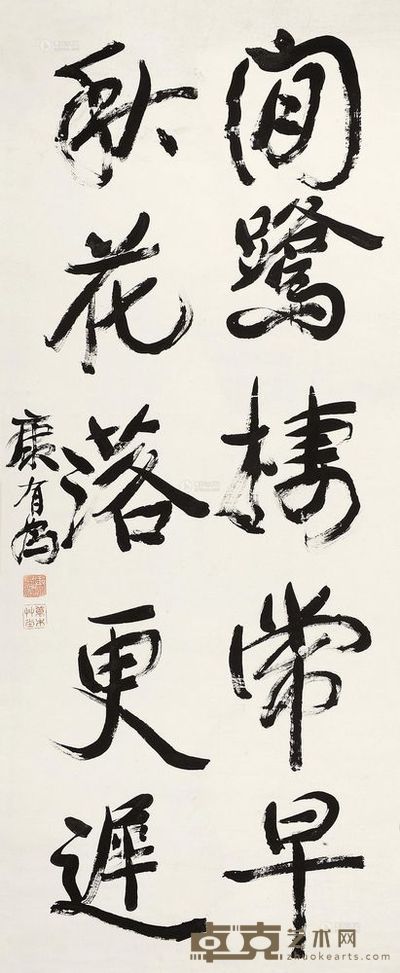 閒鷺棲常早
秋花落更遲
康有為
卓克艺术网
zhuokearts.com